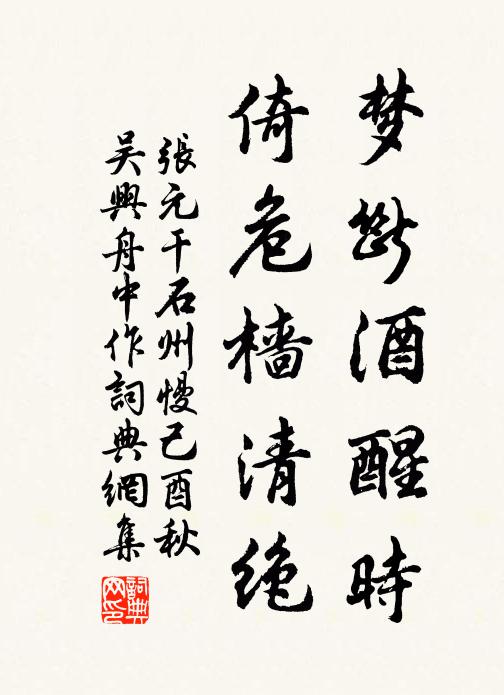 梦断酒醒時
倚危檣清绝
張元干石州慢己酉秋
吴興舟中作詞典網集
詞典网印